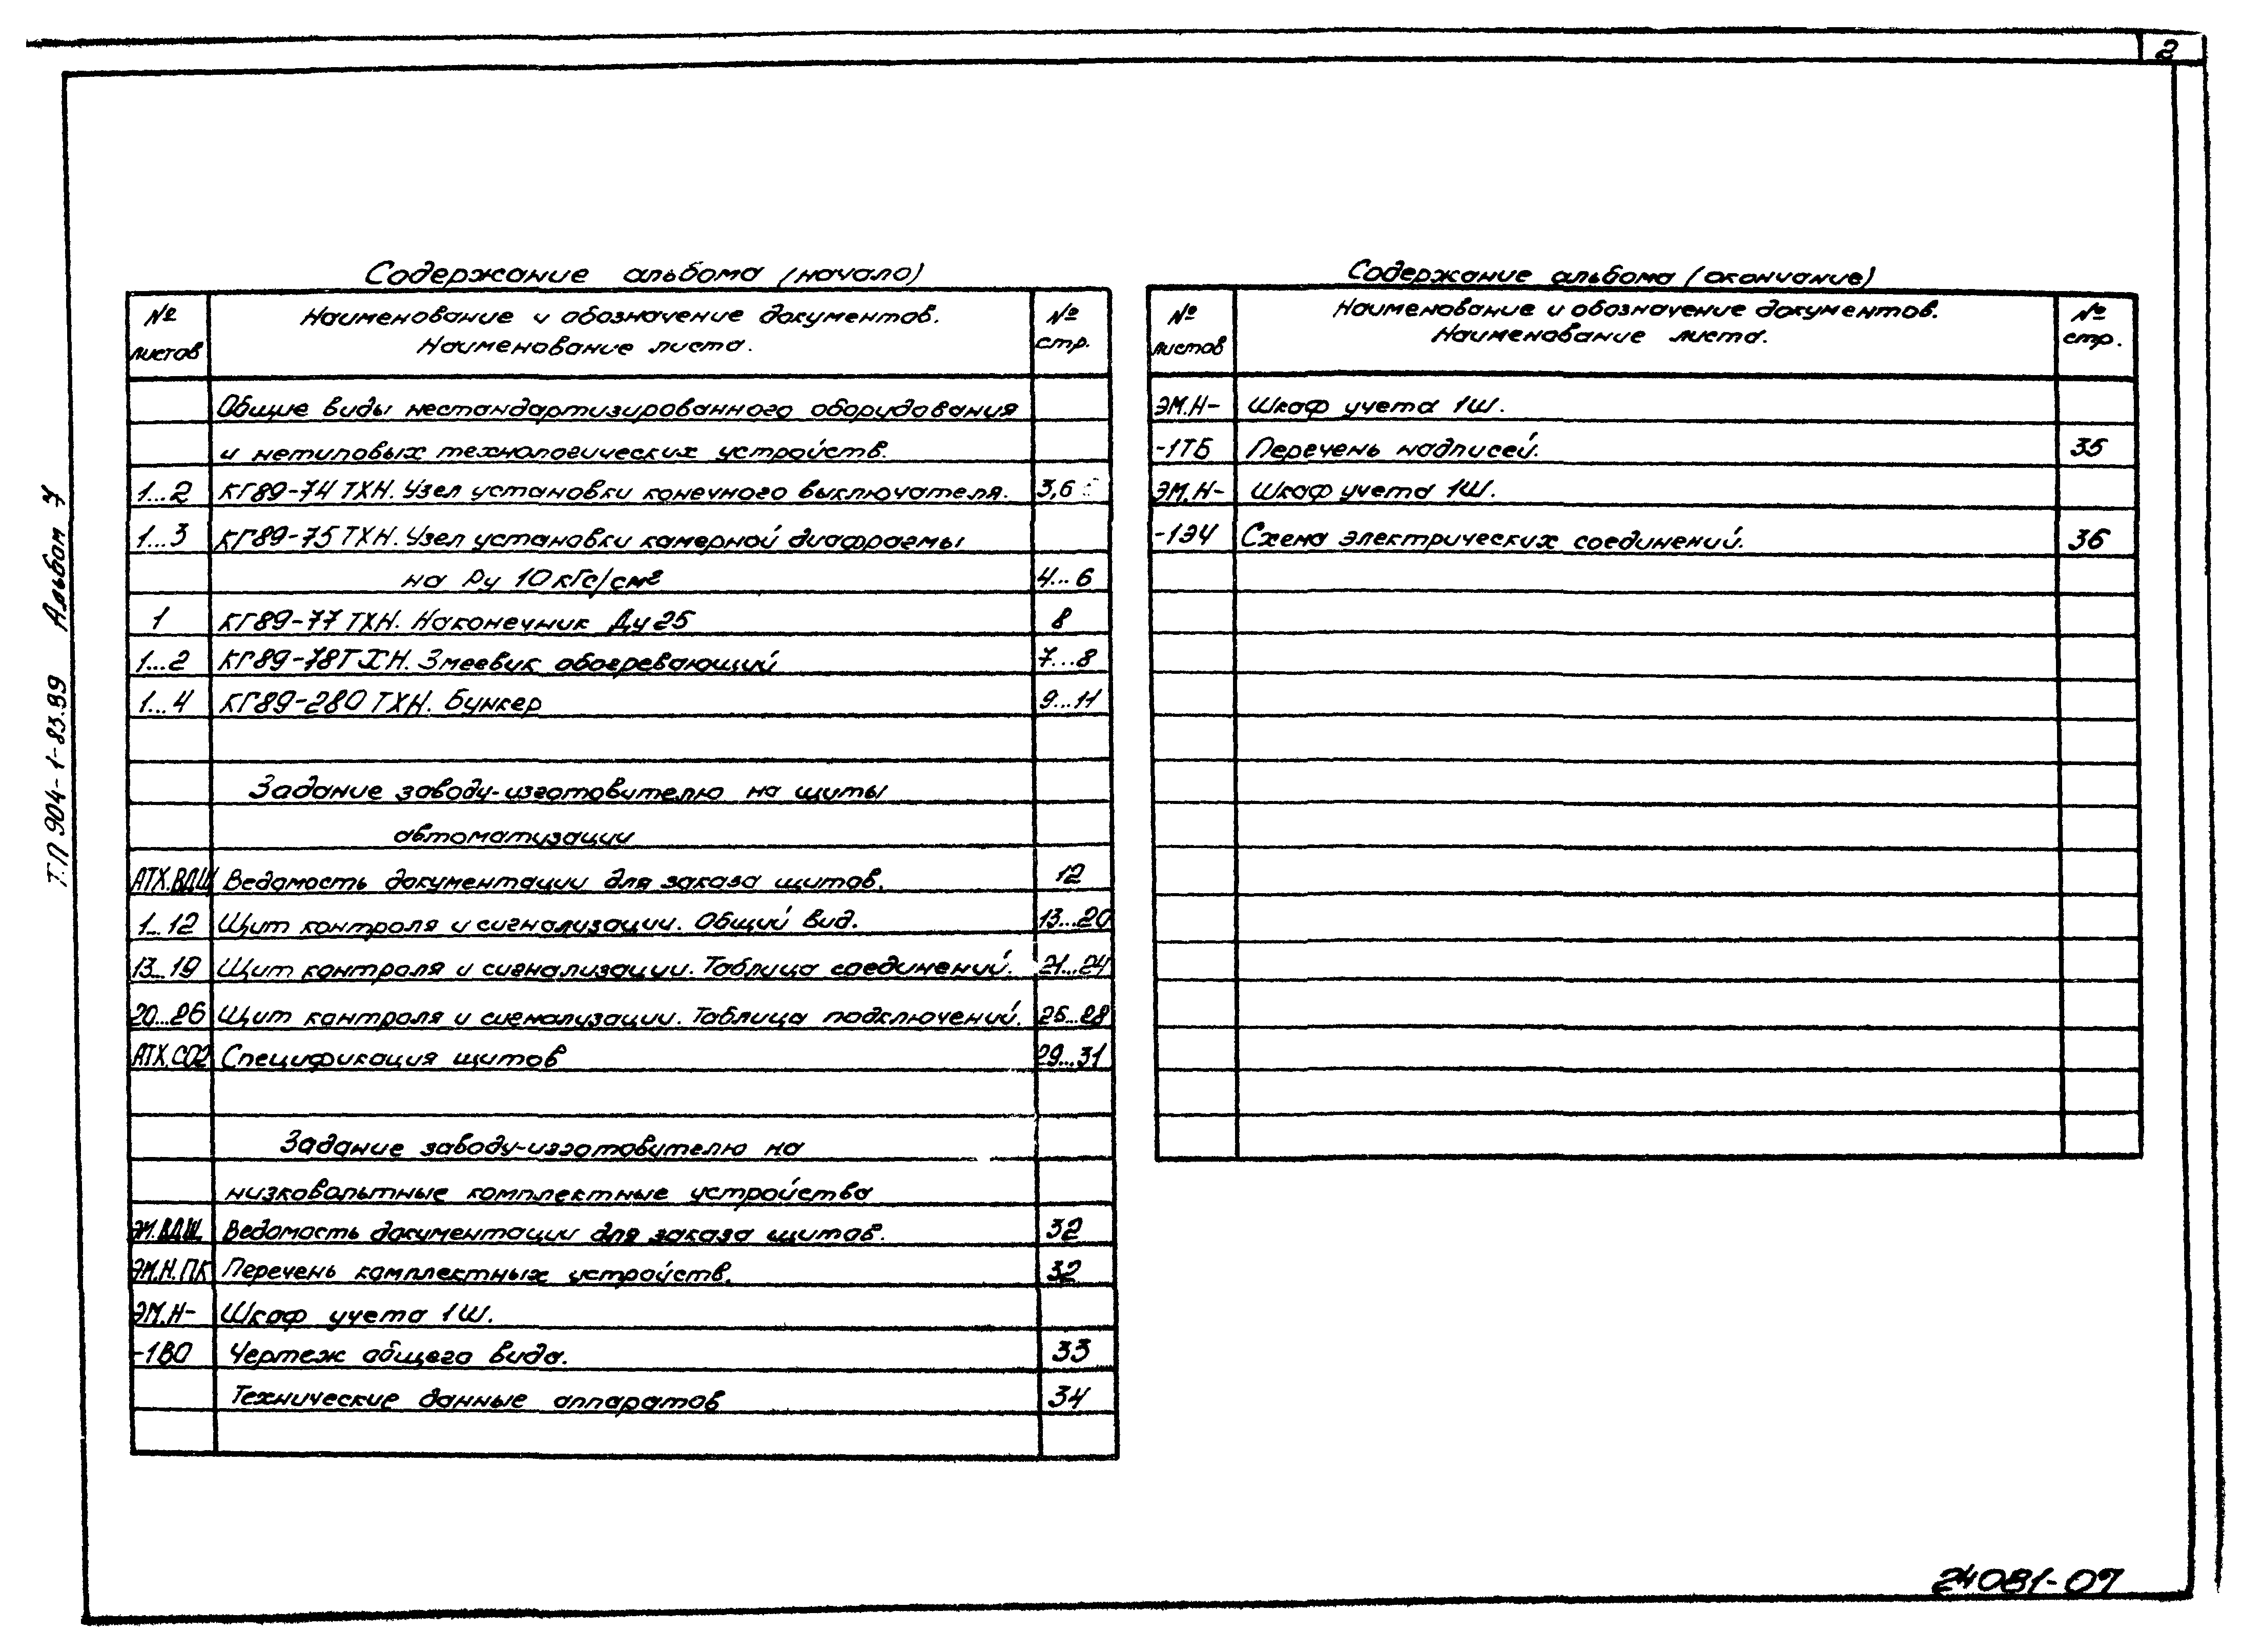 2
Т.П 904-1-83.89 Альбом 7
Содержание альбома (начало)
№ листов | Наименование и обозначение документов. Наименование листа. | № стр.
Общие виды нестандартизированного оборудования
и нетиповых технологических устройств.
1...2 | КГ89-74 ТХН. Узел установки конечного выключателя. | 3,6
1...3 | КГ89-75 ТХН. Узел установки камерной диафрагмы
на Ру 10 кгс/см² | 4...6
1 | КГ89-77 ТХН. Наконечник Ду 25 | 8
1...2 | КГ89-78ТХН. Змеевик обогревающий | 7...8
1...4 | КГ89-280 ТХН. Бункер | 9...11
Задание заводу-изготовителю на щиты
автоматизации
АТХ.ВДЩ | Ведомость документации для заказа щитов. | 12
1...12 | Щит контроля и сигнализации. Общий вид. | 13...20
13...19 | Щит контроля и сигнализации. Таблица соединений. | 21...24
20...26 | Щит контроля и сигнализации. Таблица подключений. | 25...28
АТХ.СО2 | Спецификация щитов | 29...31
Задание заводу-изготовителю на
низковольтные комплектные устройства
ЭМ.ВДЩ | Ведомость документации для заказа щитов. | 32
ЭМ.Н.ПК | Перечень комплектных устройств. | 32
ЭМ.Н- | Шкаф учета 1Ш.
-1ВО | Чертеж общего вида. | 33
Технические данные аппаратов | 34
Содержание альбома (окончание)
№ листов | Наименование и обозначение документов. Наименование листа. | № стр.
ЭМ.Н- | Шкаф учета 1Ш.
-1ТБ | Перечень надписей. | 35
ЭМ.Н- | Шкаф учета 1Ш.
-1Э4 | Схема электрических соединений. | 36
24081-07